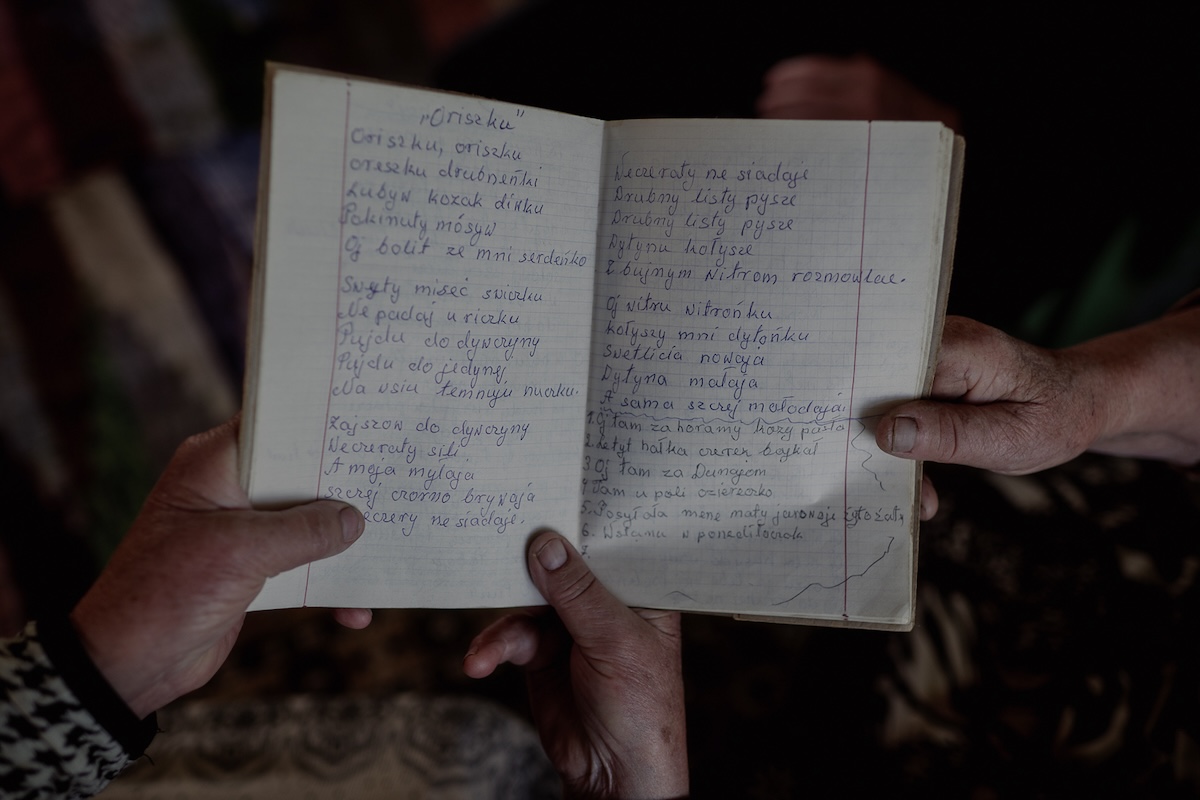 „Oriszku"
Oriszku, oriszku
oreszku drubneńki
Lubyw kozak diwku
Pokinuty mósyw
Oj bolit ze mni serdeńko
Swyty miseć swiczku
Ne padaj u riczku
Pujdu do dywczyny
Pujdu do jedynej
Na wsiu temnuju nuczku.
Zajszow do dywczyny
Weczeraty sili
A moja mylaja
szczej czorno brywaja
ne siadaje.
Weczeraty ne siadaje
Drubny listy pysze
Drubny listy pysze
Dytynu kołysze
Z bujnym witrom rozmowlae.
Oj witru witrońku
kołyszy mni dytońku
Swetlicia nowaja
Dytyna małaja
A sama szczej mołodaja
1. Oj tam za horamy kozy pasła
2. Letyt hałka czerez
3 Oj tam za Dunajom
4 Tam u poli
5. Posyłała mene maty
6. Wstanu w ponediłoczok
7.